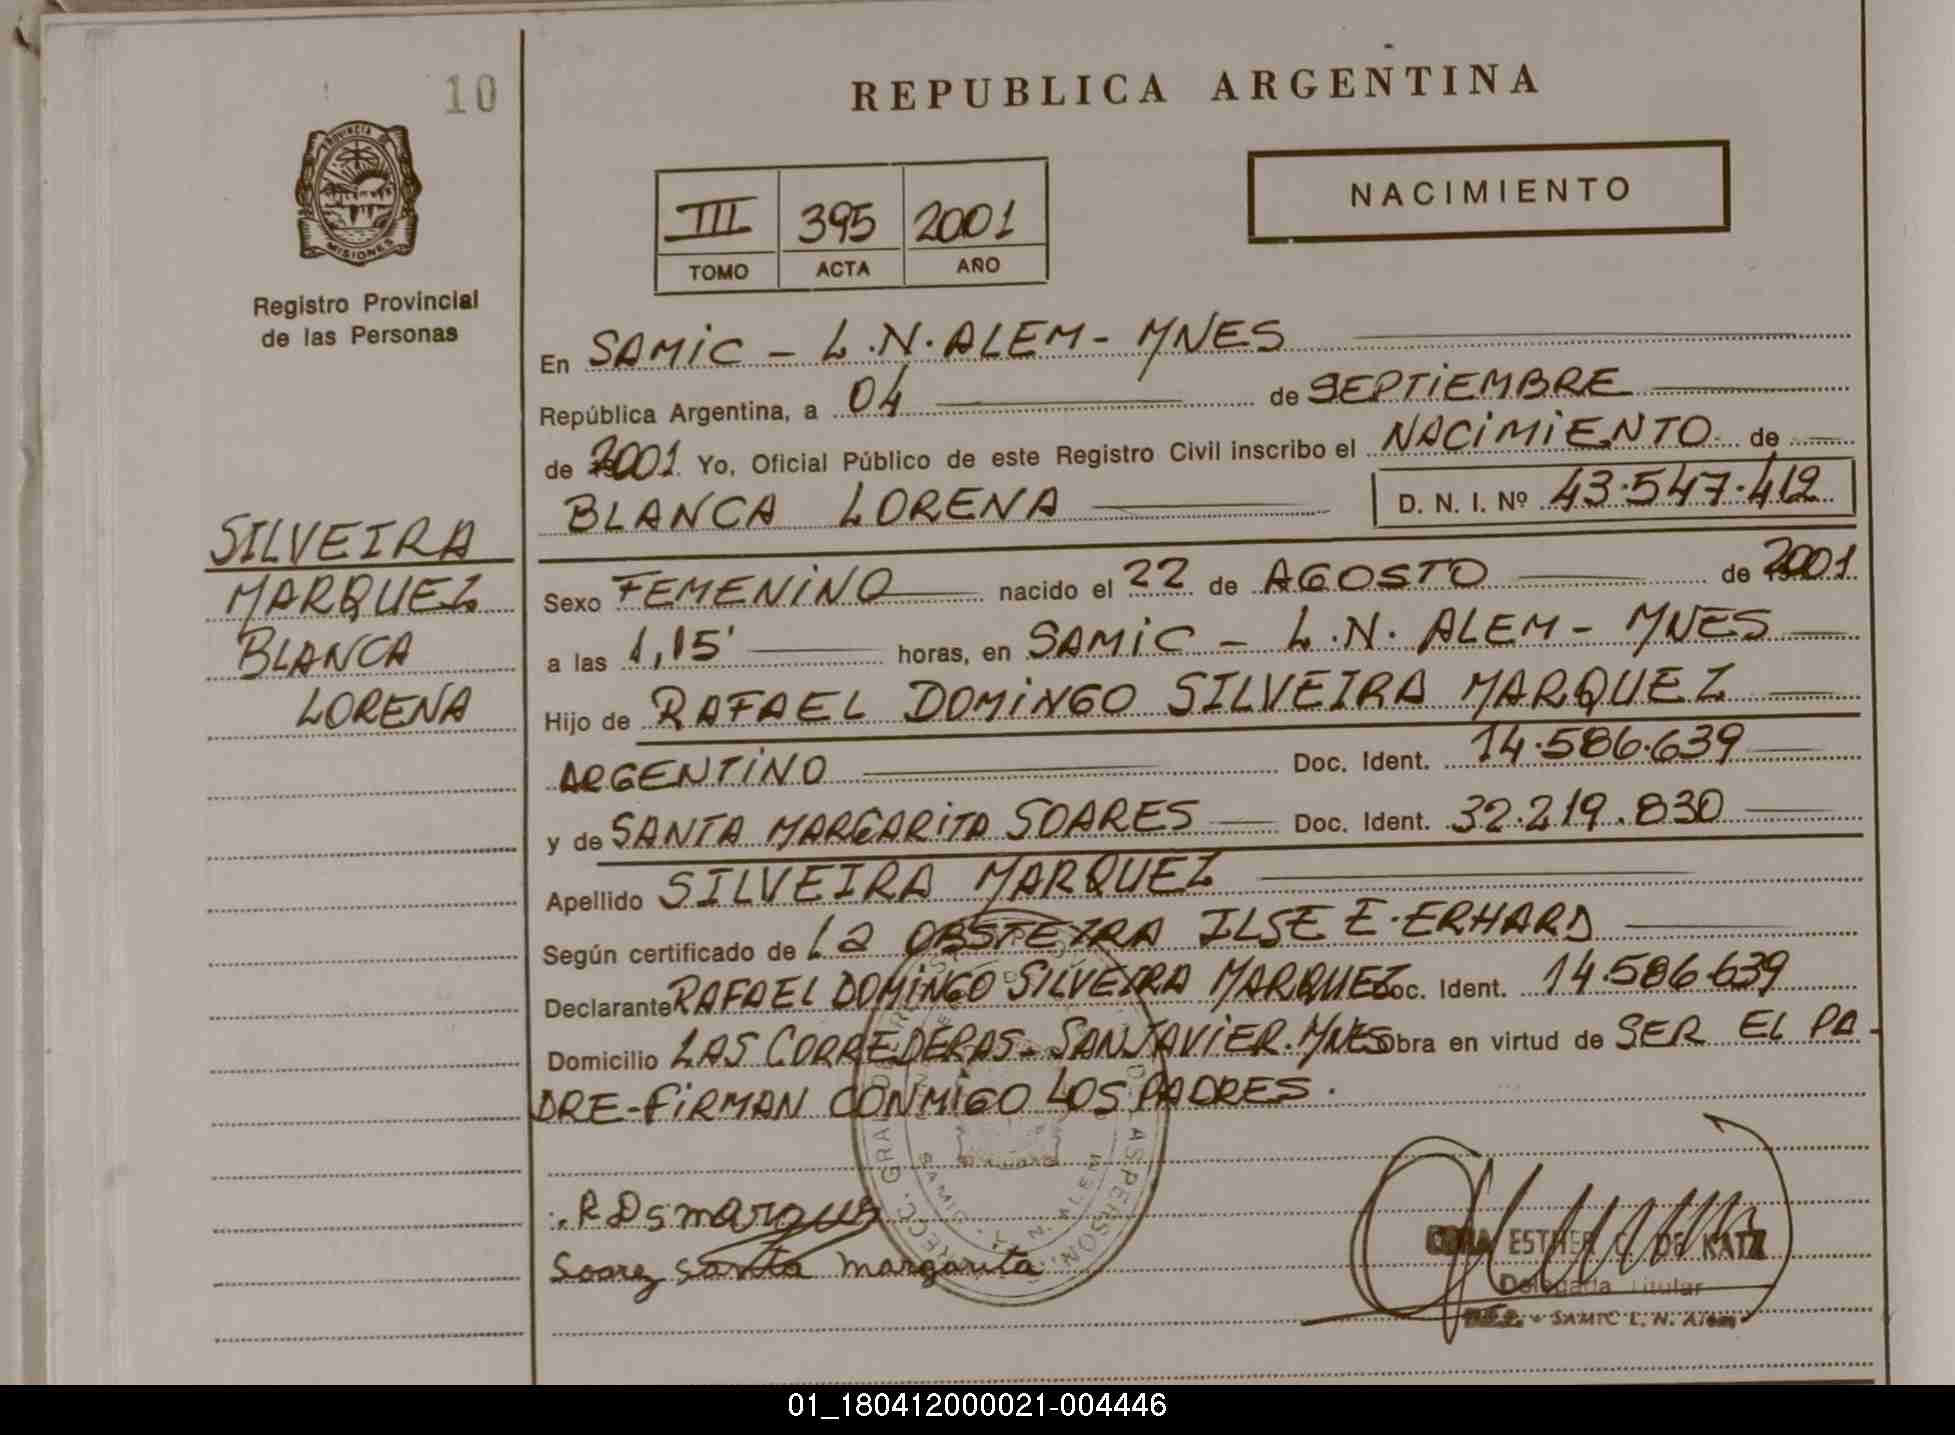 10
REPUBLICA ARGENTINA
PROVINCIA DE
MISIONES
Registro Provincial
de las Personas
NACIMIENTO
III 395 2001
TOMO ACTA AÑO
SILVEIRA
MARQUEZ
BLANCA
LORENA
En SAMIC - L.N. ALEM - MNES
República Argentina, a 04 de SEPTIEMBRE
de 2001 Yo, Oficial Público de este Registro Civil inscribo el NACIMIENTO de
BLANCA LORENA D. N. I. Nº 43.547.412
Sexo FEMENINO nacido el 22 de AGOSTO de 2001
a las 1,15' horas, en SAMIC - L.N. ALEM - MNES
Hijo de RAFAEL DOMINGO SILVEIRA MARQUEZ
ARGENTINO Doc. Ident. 14.586.639
y de SANTA MARGARITA SOARES Doc. Ident. 32.219.830
Apellido SILVEIRA MARQUEZ
Según certificado de La OBSTETRA ILSE E. ERHARD
Declarante RAFAEL DOMINGO SILVEIRA MARQUEZ Doc. Ident. 14.586.639
Domicilio LAS CORREDERAS - SAN JAVIER. MNES Obra en virtud de SER EL PA-
DRE - FIRMAN CONMIGO LOS PADRES.
R D S marques
Soarez santa margarita
ESTHER C. DE KATZ
Delegada Titular
SAMIC L. N. Alem
01_180412000021-004446